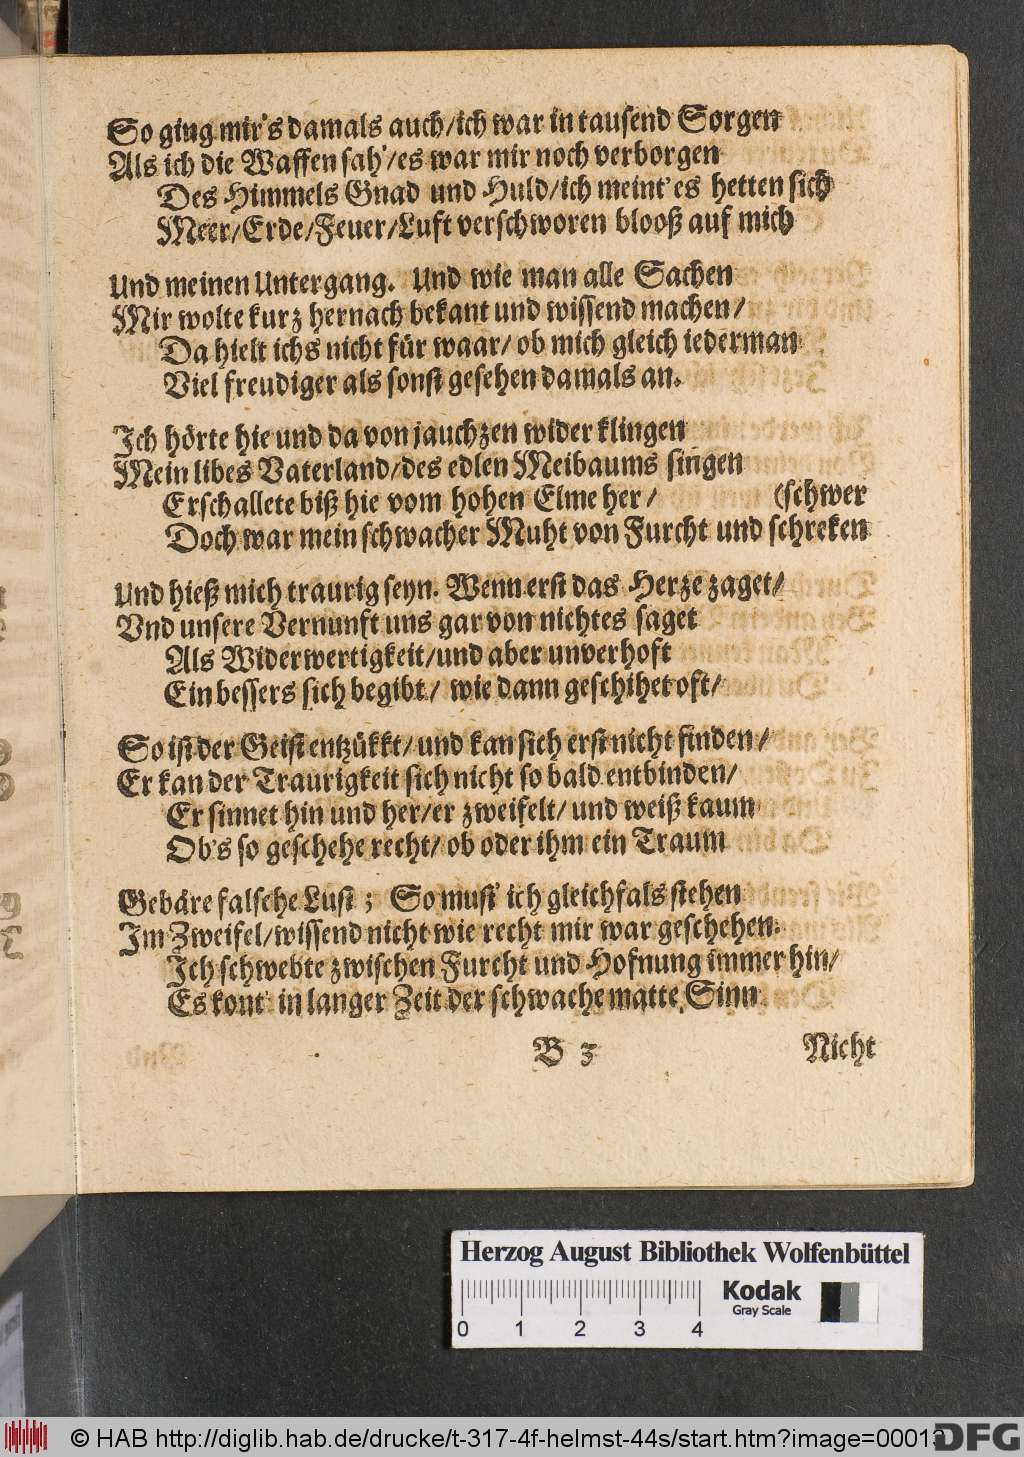 So ging mir's damals auch/ich war in tausend Sorgen
Als ich die Waffen sah'/es war mir noch verborgen
Des Himmels Gnad und Huld/ich meint' es hetten sich
Meer/Erde/Feuer/Luft verschworen blooß auf mich
Und meinen Untergang. Und wie man alle Sachen
Mir wolte kurz hernach bekant und wissend machen/
Da hielt ichs nicht für waar/ ob mich gleich iederman
Viel freudiger als sonst gesehen damals an.
Ich hörte hie und da von jauchzen wider klingen
Mein libes Vaterland/des edlen Meibaums singen
Erschallete biß hie vom hohen Elme her/ (schwer
Doch war mein schwacher Muht von Furcht und schreken
Und hieß mich traurig seyn. Wenn erst das Herze zaget/
Vnd unsere Vernunft uns gar von nichtes saget
Als Widerwertigkeit/und aber unverhoft
Ein bessers sich begibt/ wie dann geschihet oft/
So ist der Geist entzükkt/ und kan sich erst nicht finden/
Er kan der Traurigkeit sich nicht so bald entbinden/
Er sinnet hin und her/er zweifelt/ und weiß kaum
Ob's so geschehe recht/ ob oder ihm ein Traum
Gebäre falsche Lust; So must' ich gleichfals stehen
Im Zweifel/wissend nicht wie recht mir war geschehen.
Ich schwebte zwischen Furcht und Hofnung immer hin/
Es kont' in langer Zeit der schwache matte Sinn
B 3 Nicht
Herzog August Bibliothek Wolfenbüttel
Kodak
Gray Scale
0 1 2 3 4
© HAB http://diglib.hab.de/drucke/t-317-4f-helmst-44s/start.htm?image=00013
DFG